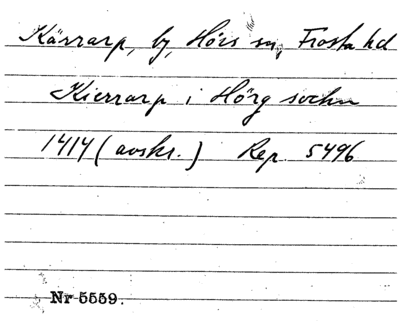 Kärrarp, by, Hörs sn, Frosta hd
Kierrarp i Hörg sochn
1414 (avskr.) Rep. 5496
Nr 5559.